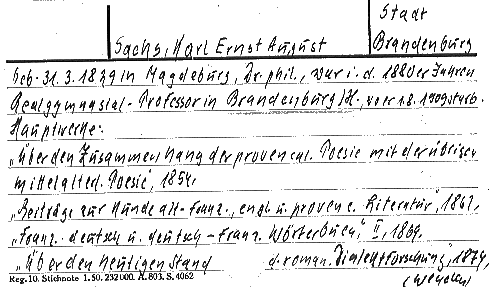 Stadt
Sachs, Karl Ernst August Brandenburg
Geb. 31.3.1829 in Magdeburg, Dr. phil., war i. d. 1880er Jahren
Realgymnasial-Professor in Brandenburg/H., vor 1.8.1909 starb.
Hauptwerke:
"Über den Zusammenhang der provencal. Poesie mit der übrigen
mittelalterl. Poesie", 1854.
"Beiträge zur Kunde alt-franz., engl. u. provenc. Literatur",
"Franz.-deutsch u. deutsch-franz. Wörterbuch", II, 1869.
"Über den heutigen Stand d. roman. Dialektforschung", 1874,
Reg. 10. Stichnote 1. 50. 232000. A. 803. S. 4062